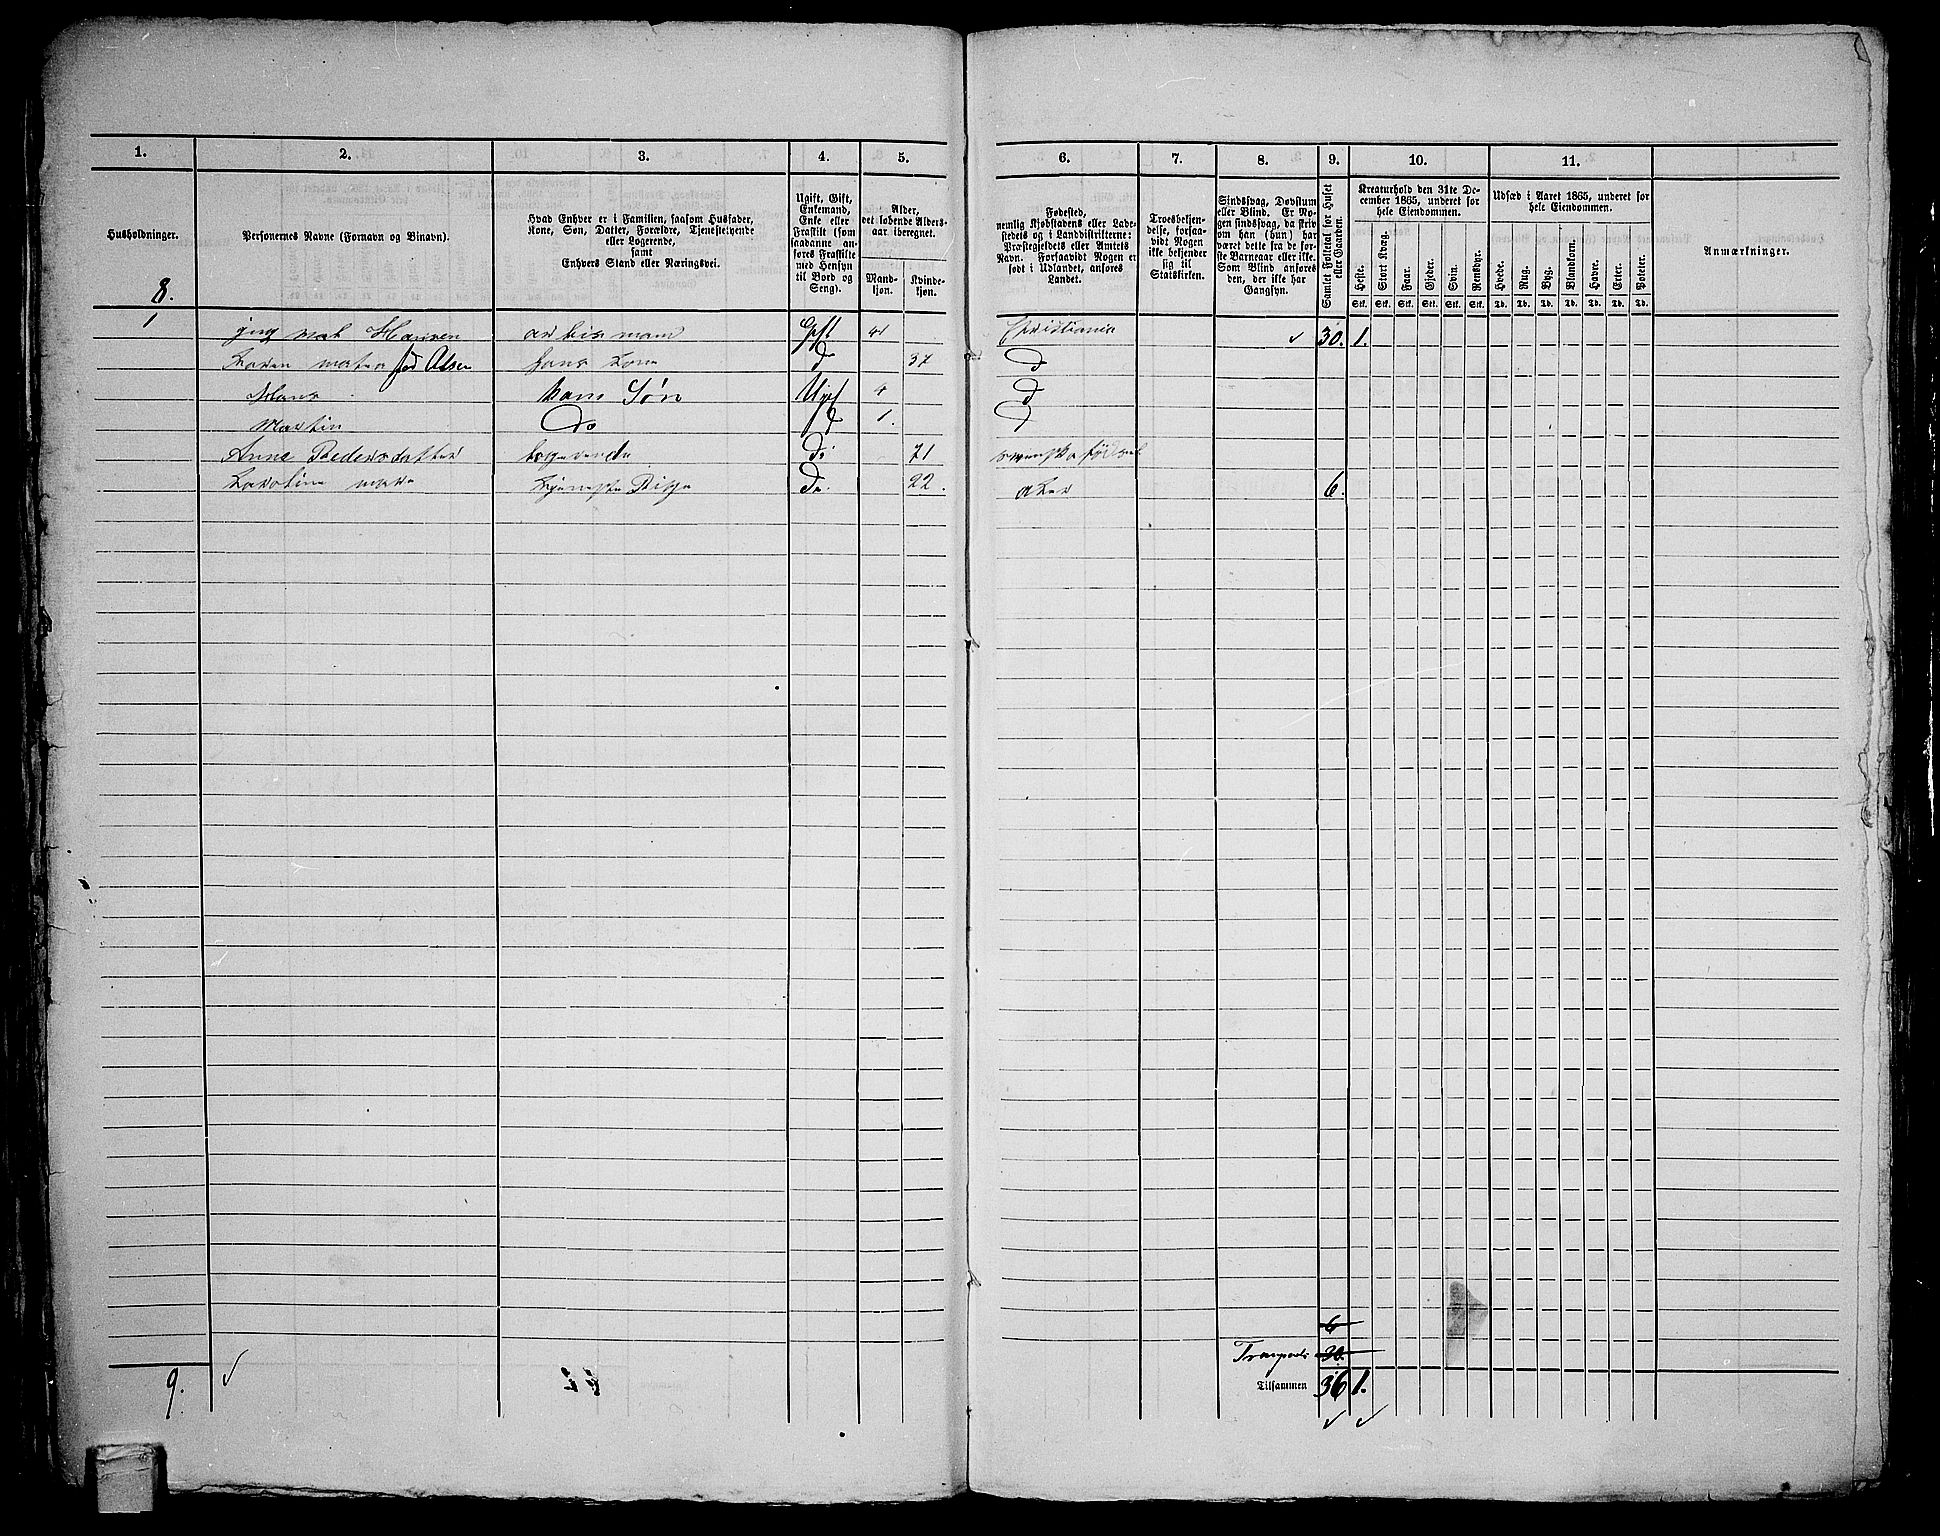 1. 2. 3. 4. 5.
Husholdninger.
Personernes Navne (Fornavn og Binavn).
Hvad Enhver er i Familien, saasom Husfader,
Kone, Søn, Datter, Forældre, Tjenestetyende
eller Logerende,
samt
Enhvers Stand eller Næringsvei.
Ugift, Gift,
Enkemand,
Enke eller
Fraskilt (som
saadanne an-
føres Fraskilte
med Hensyn
til Bord og
Seng).
Alder,
det løbende Alders-
aar iberegnet.
Mand-
kjøn.
Kvinde-
kjøn.
8.
1
Hansen Gift 41
Olsen 37
Hans hans Søn Ugift 4
Martin Do 1.
Anne Pedersdatter logerende Do 71
Karoline Do. 22.
9.
6. 7. 8. 9. 10. 11.
Fødested,
nemlig Kjøbstadens eller Lade-
stedets og i Landdistrikterne:
Præstegjeldets eller Amtets
Navn. Forsaavidt Nogen er
født i Udlandet, anføres
Landet.
Troesbekjen-
delse, forsaa-
vidt Nogen
ikke bekjender
sig til
Statskirken.
Sindssvag, Døvstum
eller Blind. Er No-
gen sindssvag, da skriv
om han (hun) har
været dette fra de før-
ste Barneaar eller ikke.
Som Blind anføres
den, der ikke har
Gangsyn.
Samlet Folketal for Huset
eller Gaarden.
Kreaturhold den 31te De-
cember 1865, underet for
hele Eiendommen.
Heste. Stort Kvæg. Faar. Gjeder. Svin. Rensdyr.
Stk. Stk. Stk. Stk. Stk. Stk.
Udsæd i Aaret 1865, underet for
hele Eiendommen.
Hvede. Rug. Byg. Blandkorn. Havre. Erter. Poteter.
Td. Td. Td. Td. Td. Td. Td.
Anmærkninger.
Christiania 30. 1.
d
d
d
Aker 6.
6
30.
Tilsammen 36 1.